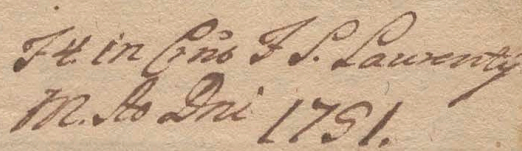 F 4. in Crno F S. Laurentij
M. Ao Dni 1751.